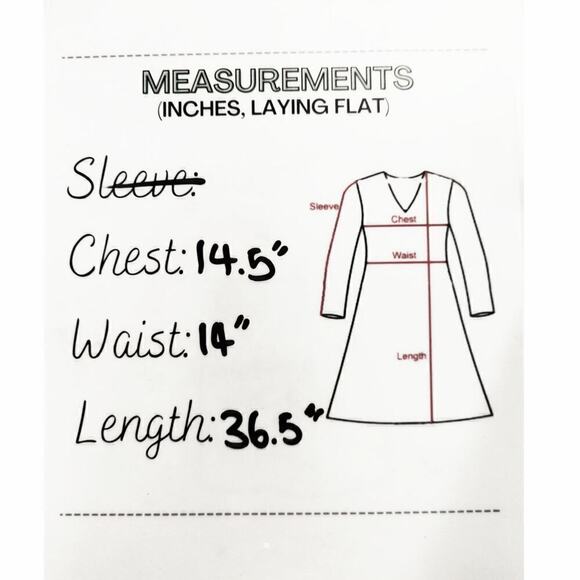 MEASUREMENTS
(INCHES, LAYING FLAT)
Sleeve:
Chest: 14.5"
Waist: 14"
Length: 36.5"
Sleeve
Chest
Waist
Length